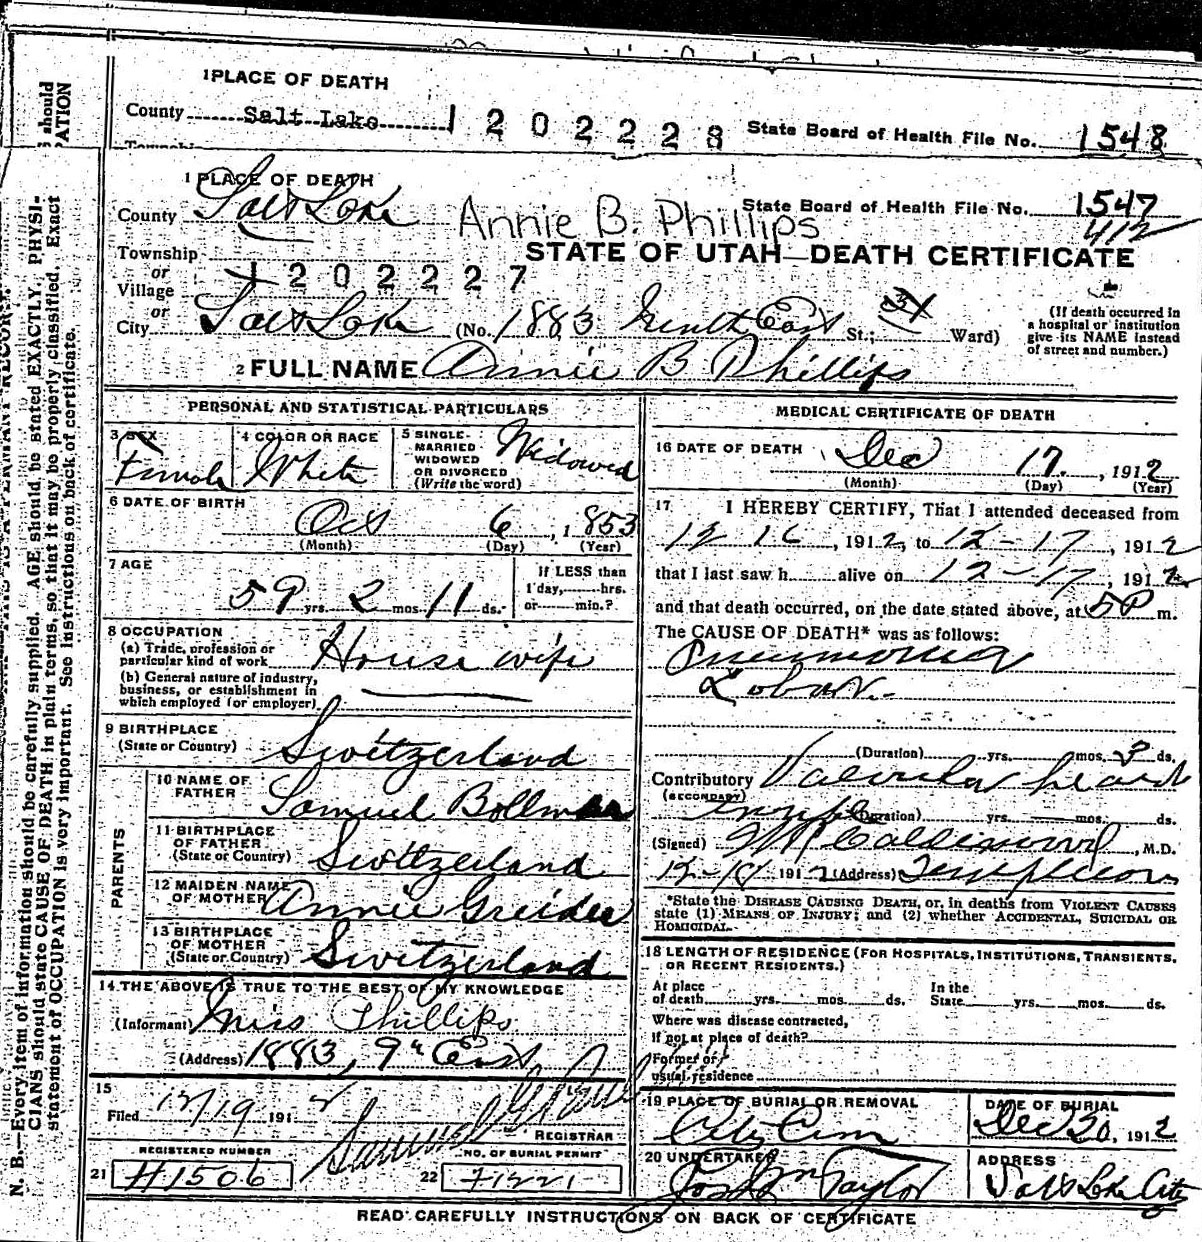 1 PLACE OF DEATH
County Salt Lake 1202228 State Board of Health File No. 1548
1 PLACE OF DEATH
County Salt Lake Annie B. Phillips State Board of Health File No. 1547
412
Township STATE OF UTAH—DEATH CERTIFICATE
or
Village 1202227
or
City Salt Lake (No. 1883 Ninth East St.; Ward)
(If death occurred in a hospital or institution give its NAME instead of street and number.)
2 FULL NAME Annie B Phillips
PERSONAL AND STATISTICAL PARTICULARS
3 SEX Female
4 COLOR OR RACE White
5 SINGLE MARRIED WIDOWED OR DIVORCED (Write the word) Widowed
6 DATE OF BIRTH
Oct 6, 1853
(Month) (Day) (Year)
7 AGE
59 yrs. 2 mos. 11 ds.
If LESS than 1 day, hrs. or min.?
8 OCCUPATION
(a) Trade, profession or particular kind of work House wife
(b) General nature of industry, business, or establishment in which employed (or employer)
9 BIRTHPLACE
(State or Country) Switzerland
PARENTS
10 NAME OF FATHER Samuel
11 BIRTHPLACE OF FATHER (State or Country) Switzerland
12 MAIDEN NAME OF MOTHER Annie Greider
13 BIRTHPLACE OF MOTHER (State or Country) Switzerland
14 THE ABOVE IS TRUE TO THE BEST OF MY KNOWLEDGE
(Informant) Miss Phillips
(Address) 1883, 9th East
15
Filed 12/19 1912
REGISTRAR
REGISTERED NUMBER
21 #1506
NO. OF BURIAL PERMIT
22
MEDICAL CERTIFICATE OF DEATH
16 DATE OF DEATH Dec 17, 1912
(Month) (Day) (Year)
17 I HEREBY CERTIFY, That I attended deceased from
12 16, 1912, to 12-17, 1912
that I last saw h alive on 12-17, 1912
and that death occurred, on the date stated above, at 5P m.
The CAUSE OF DEATH* was as follows:
Pneumonia
Lobar.
(Duration) yrs. mos. 3 ds.
Contributory Valvular heart
(SECONDARY)
(Duration) yrs. mos. ds.
(Signed) M.D.
1912 (Address)
*State the DISEASE CAUSING DEATH, or, in deaths from VIOLENT CAUSES
state (1) MEANS OF INJURY; and (2) whether ACCIDENTAL, SUICIDAL OR
HOMICIDAL.
18 LENGTH OF RESIDENCE (FOR HOSPITALS, INSTITUTIONS, TRANSIENTS,
OR RECENT RESIDENTS.)
At place of death yrs. mos. ds. In the State yrs. mos. ds.
Where was disease contracted,
If not at place of death?
Former or
usual residence
19 PLACE OF BURIAL OR REMOVAL City Cem
DATE OF BURIAL Dec 20, 1912
20 UNDERTAKER Jos Wm Taylor
ADDRESS Salt Lake City
READ CAREFULLY INSTRUCTIONS ON BACK OF CERTIFICATE
N. B.—Every item of information should be carefully supplied. AGE should be stated EXACTLY. PHYSI-
CIANS should state CAUSE OF DEATH in plain terms, so that it may be properly classified. Exact
statement of OCCUPATION is very important. See instructions on back of certificate.